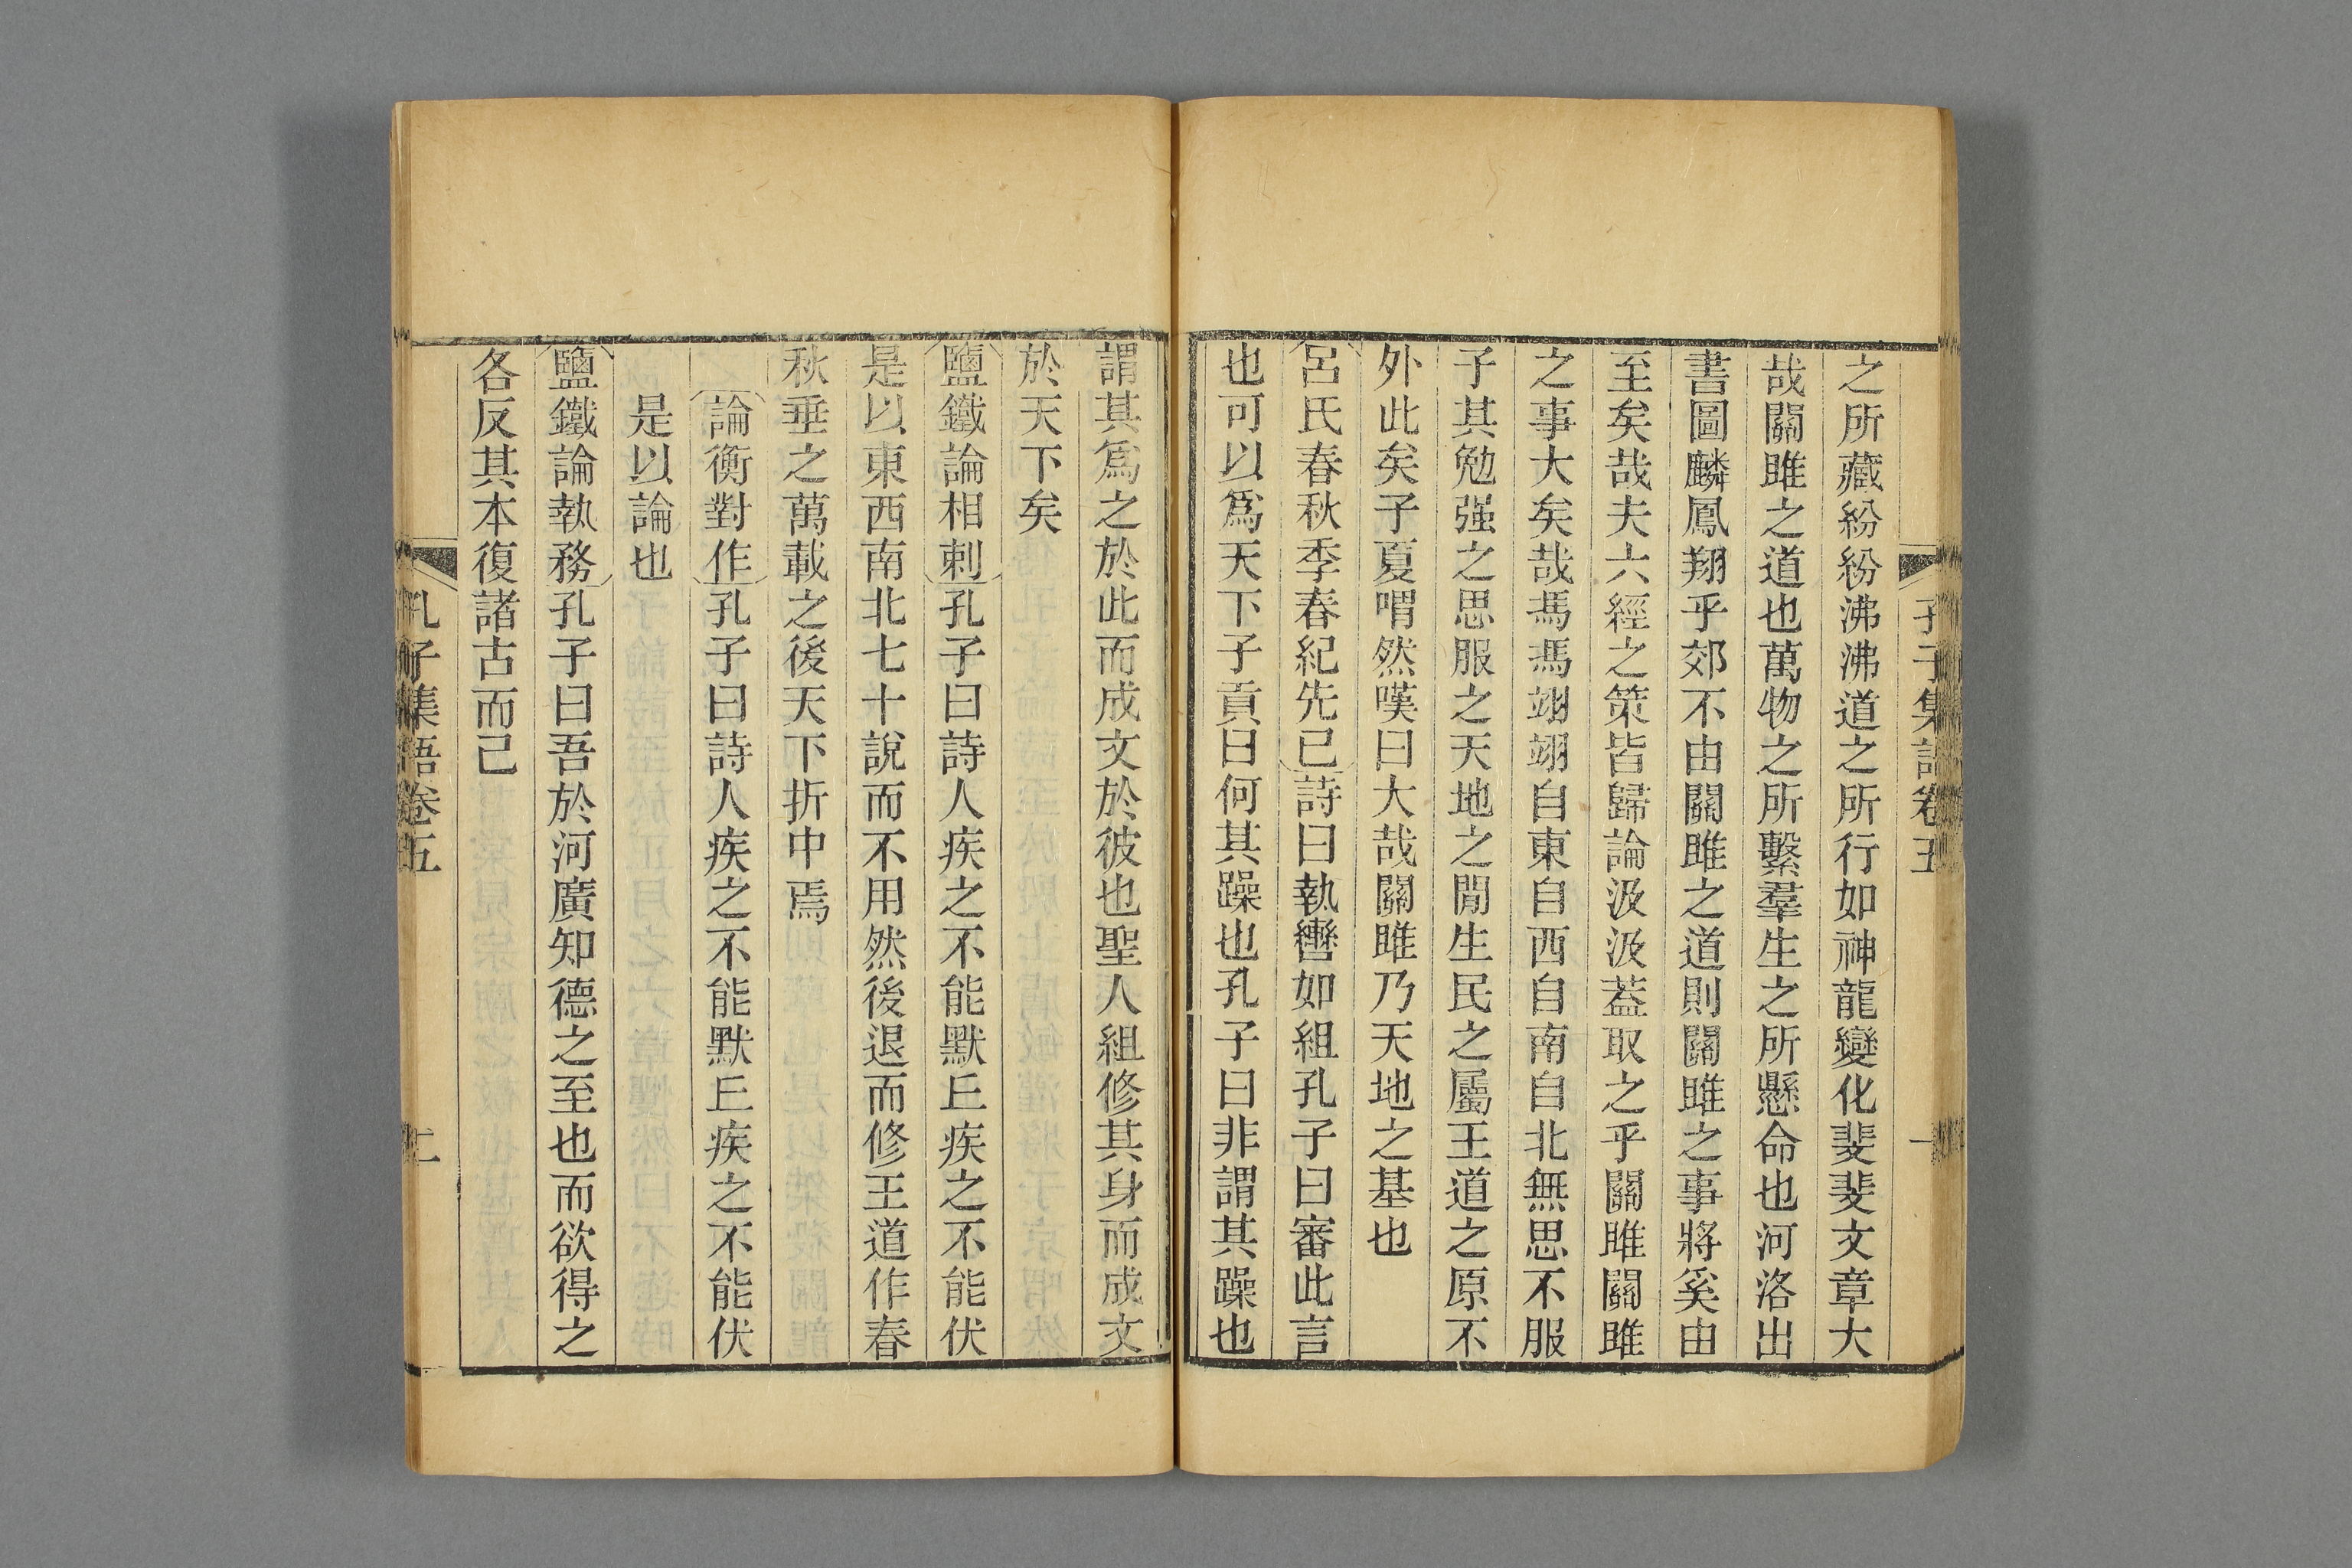 孔子集語卷五
一
之所藏紛紛沸沸道之所行如神龍變化斐斐文章大
哉關雎之道也萬物之所繫羣生之所懸命也河洛出
書圖麟鳳翔乎郊不由關雎之道則關雎之事將奚由
至矣哉夫六經之策皆歸論汲汲蓋取之乎關雎關雎
之事大矣哉馮馮翊翊自東自西自南自北無思不服
子其勉强之思服之天地之閒生民之屬王道之原不
外此矣子夏喟然嘆曰大哉關雎乃天地之基也
呂氏春秋季春紀先己詩曰執轡如組孔子曰審此言
也可以爲天下子貢曰何其躁也孔子曰非謂其躁也
謂其爲之於此而成文於彼也聖人組修其身而成文
於天下矣
鹽鐵論相刺孔子曰詩人疾之不能默丘疾之不能伏
是以東西南北七十說而不用然後退而修王道作春
秋垂之萬載之後天下折中焉
論衡對作孔子曰詩人疾之不能默丘疾之不能伏
是以論也
鹽鐵論執務孔子曰吾於河廣知德之至也而欲得之
各反其本復諸古而已
孔子集語卷五
二